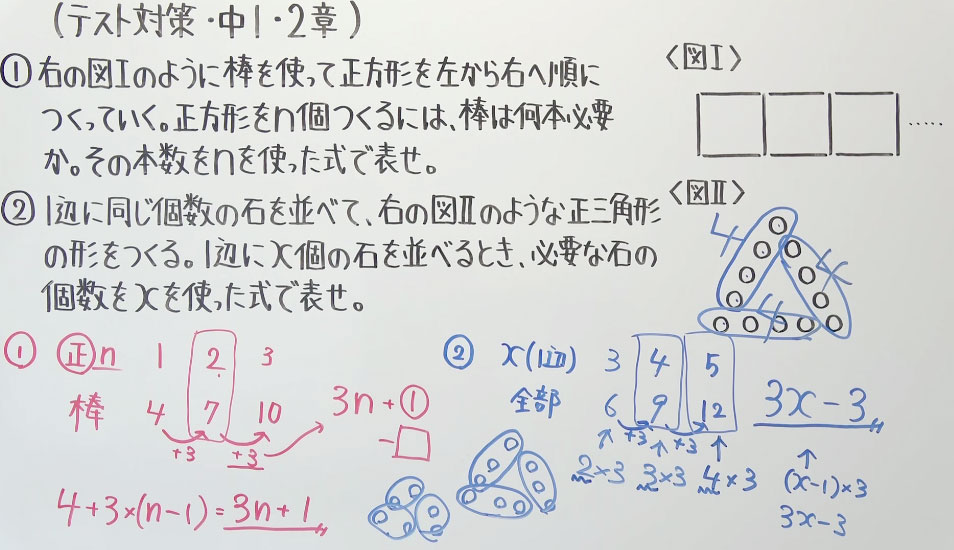 (テスト対策・中1・2章)
①右の図Iのように棒を使って正方形を左から右へ順に
つくっていく。正方形をn個つくるには、棒は何本必要
か。その本数をnを使った式で表せ。
〈図I〉
.....
②1辺に同じ個数の石を並べて、右の図IIのような正三角形
の形をつくる。1辺にx個の石を並べるとき、必要な石の
個数をxを使った式で表せ。
〈図II〉
4 4 4
① 正n 1 2 3
棒 4 7 10
+3 +3
3n+①
-□
4+3×(n-1)=3n+1
② x(1辺) 3 4 5
全部 6 9 12
+3 +3
2×3 3×3 4×3
3x-3
(x-1)×3
3x-3